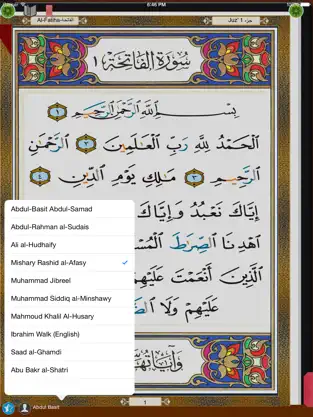 6:46 PM
Al-Fatiha-الفاتحة
Juz' 1 جزء
سُورَةُ الفَاتِحَةِ ١
بِسْمِ ٱللَّهِ ٱلرَّحْمَٰنِ ٱلرَّحِيمِ ١
ٱلْحَمْدُ لِلَّهِ رَبِّ ٱلْعَٰلَمِينَ ٢ ٱلرَّحْمَٰنِ
ٱلرَّحِيمِ ٣ مَٰلِكِ يَوْمِ ٱلدِّينِ ٤
إِيَّاكَ نَعْبُدُ وَإِيَّاكَ
ٱهْدِنَا ٱلصِّرَٰطَ
ٱلَّذِينَ أَنْعَمْتَ عَلَيْهِمْ
عَلَيْهِمْ وَلَا
وَآيَاتُهَا
Abdul-Basit Abdul-Samad
Abdul-Rahman al-Sudais
Ali al-Hudhaify
Mishary Rashid al-Afasy
Muhammad Jibreel
Muhammad Siddiq al-Minshawy
Mahmoud Khalil Al-Husary
Ibrahim Walk (English)
Saad al-Ghamdi
Abu Bakr al-Shatri
Abdul Basit
1